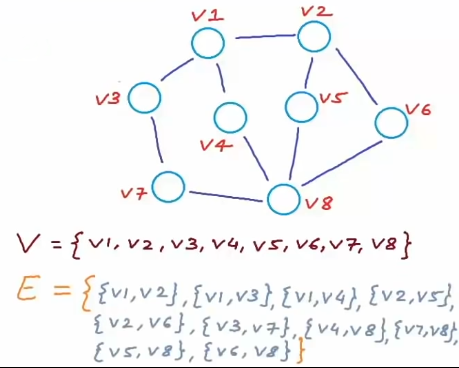 v1
v2
v3
v4
v5
v6
v7
v8
V = {v1, v2, v3, v4, v5, v6, v7, v8}
E = {{v1,v2}, {v1,v3}, {v1,v4}, {v2,v5},
{v2,v6}, {v3,v7}, {v4,v8}, {v7,v8},
{v5,v8}, {v6,v8}}